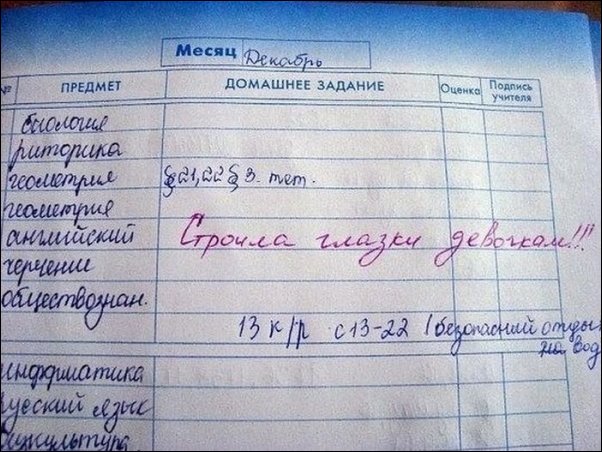 Месяц Декабрь
№ ПРЕДМЕТ ДОМАШНЕЕ ЗАДАНИЕ Оценка Подпись учителя
биология
риторика
геометрия §21,22 § 3. тет.
геометрия
английский Строила глазки девочкам!!!
черчение
обществознан.
13 к/р с 13-22 (безопасный отды
на вод
информатика
русский язык